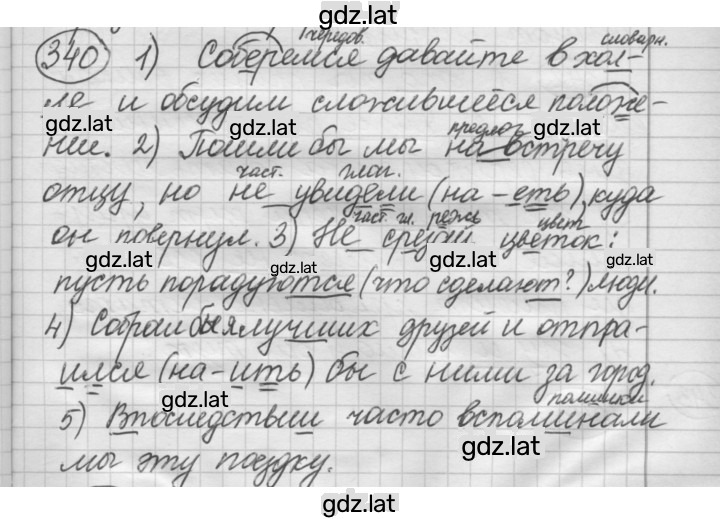 gdz.lat
чередов. словарн.
340 1) Соберемся давайте в хол-
ле и обсудим сложившееся положе-
gdz.lat gdz.lat gdz.lat
предлог
нии. 2) Пошли бы мы на встречу
част. глаг.
отцу, но не увидели (на -еть), куда
част. гл. режь цвет
он повернул. 3) Не срезай цветок:
gdz.lat gdz.lat gdz.lat gdz.lat
пусть порадуются (что сделают?) люди.
4) Собрал бы я лучших друзей и отпра-
gdz.lat
вился (на -ить) бы с ними за город.
gdz.lat
поминки
5) Впоследствии часто вспоминали
gdz.lat
мы эту поездку.
gdz.lat